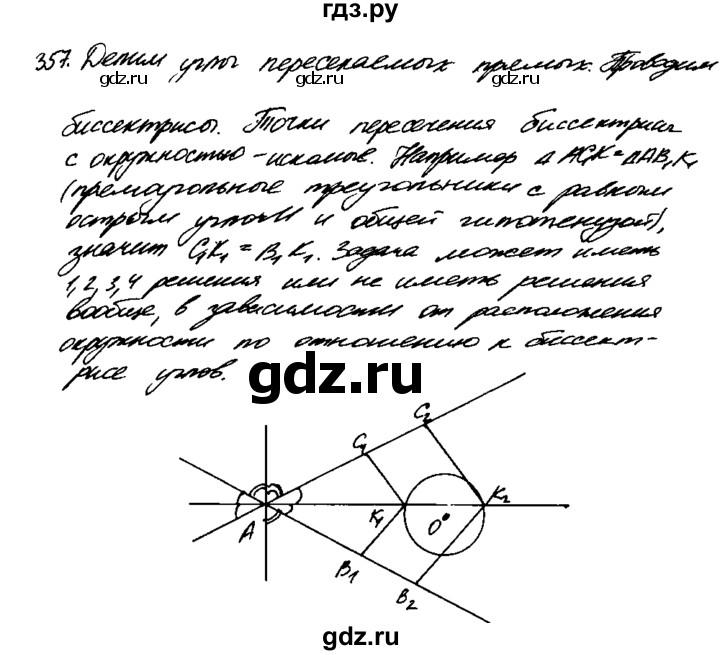 гдз.ру
357. Делим углы пересекаемых прямых. Проводим
gdz.ru gdz.ru gdz.ru
биссектрисы. Точки пересечения биссектрис
с окружностью – искомые. Например Δ AC₁K₁ = ΔAB₁K₁
gdz.ru gdz.ru
(прямоугольные треугольники с равными
острым углом и общей гипотенузой),
значит C₁K₁ = B₁K₁. Задача может иметь
gdz.ru gdz.ru gdz.ru
1, 2, 3, 4 решения или не иметь решения
вообще, в зависимости от расположения
окружности по отношению к биссект-
gdz.ru gdz.ru
рисе углов.
gdz.ru
C₂
C₁
K₂
K₁
O
A
B₁
B₂
gdz.ru